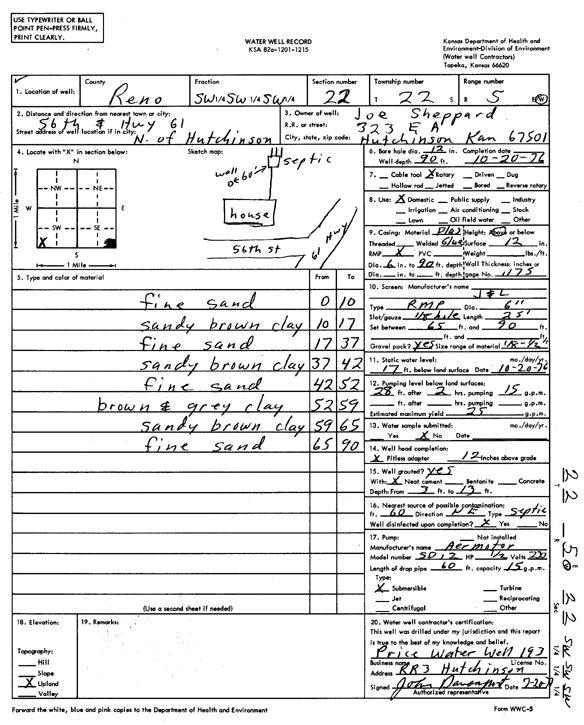 USE TYPEWRITER OR BALL
POINT PEN-PRESS FIRMLY,
PRINT CLEARLY.
WATER WELL RECORD
KSA 82a-1201-1215
Kansas Department of Health and
Environment-Division of Environment
(Water well Contractors)
Topeka, Kansas 66620
1. Location of well:
County
Reno
Fraction
SW 1/4 SW 1/4 SW 1/4
Section number
22
Township number
T 22 S
Range number
R 5 E/W
2. Distance and direction from nearest town or city:
56th & Hwy 61
Street address of well location if in city:
N. of Hutchinson
3. Owner of well: Joe Sheppard
R.R. or street: 323 E A
City, state, zip code: Hutchinson Kan 67501
4. Locate with "X" in section below:
N
NW NE
W E
SW SE
X
S
1 Mile
1 Mile
Sketch map:
well
septic
house
56th st
61 Hwy
5. Type and color of material
From To
fine sand 0 10
sandy brown clay 10 17
fine sand 17 37
sandy brown clay 37 42
fine sand 42 52
brown & grey clay 52 59
sandy brown clay 59 65
fine sand 65 90
(Use a second sheet if needed)
6. Bore hole dia. 12 in. Completion date
Well depth 90 ft. 10-20-76
7. Cable tool X Rotary Driven Dug
Hollow rod Jetted Bored Reverse rotary
8. Use: X Domestic Public supply Industry
Irrigation Air conditioning Stock
Lawn Oil field water Other
9. Casing: Material Plas Height: Above or below
Threaded Welded Glue Surface 12 in.
RMP X PVC Weight lbs./ft.
Dia. 6 in. to 90 ft. depth Wall Thickness: inches or
Dia. in. to ft. depth gage No. .175
10. Screen: Manufacturer's name
J & L
Type RMP Dia. 6"
Slot/gauze 1/8 hole Length 25'
Set between 65 ft. and 90 ft.
ft. and ft.
Gravel pack? yes Size range of material 1/8-1/2"
11. Static water level: mo./day/yr.
17 ft. below land surface Date 10-20-76
12. Pumping level below land surfaces:
28 ft. after 2 hrs. pumping 15 g.p.m.
ft. after hrs. pumping g.p.m.
Estimated maximum yield 25 g.p.m.
13. Water sample submitted: mo./day/yr.
Yes X No Date
14. Well head completion:
X Pitless adapter 12 Inches above grade
15. Well grouted? yes
With: X Neat cement Bentonite Concrete
Depth: From 3 ft. to 13 ft.
16. Nearest source of possible contamination:
ft. 60 Direction NE Type septic
Well disinfected upon completion? X Yes No
17. Pump: Not installed
Manufacturer's name Aermotor
Model number SD12 HP 1/2 Volts 220
Length of drop pipe 60 ft. capacity 15 g.p.m.
Type:
X Submersible Turbine
Jet Reciprocating
Centrifugal Other
18. Elevation:
Topography:
Hill
Slope
X Upland
Valley
19. Remarks:
20. Water well contractor's certification:
This well was drilled under my jurisdiction and this report
is true to the best of my knowledge and belief.
Price Water Well 193
Business name License No.
Address RR3 Hutchinson
Signed John Davenport Date
Authorized representative
Forward the white, blue and pink copies to the Department of Health and Environment
Form WWC-5
T 22 - R 5 E W Sec 22 SW 1/4 SW 1/4 SW 1/4